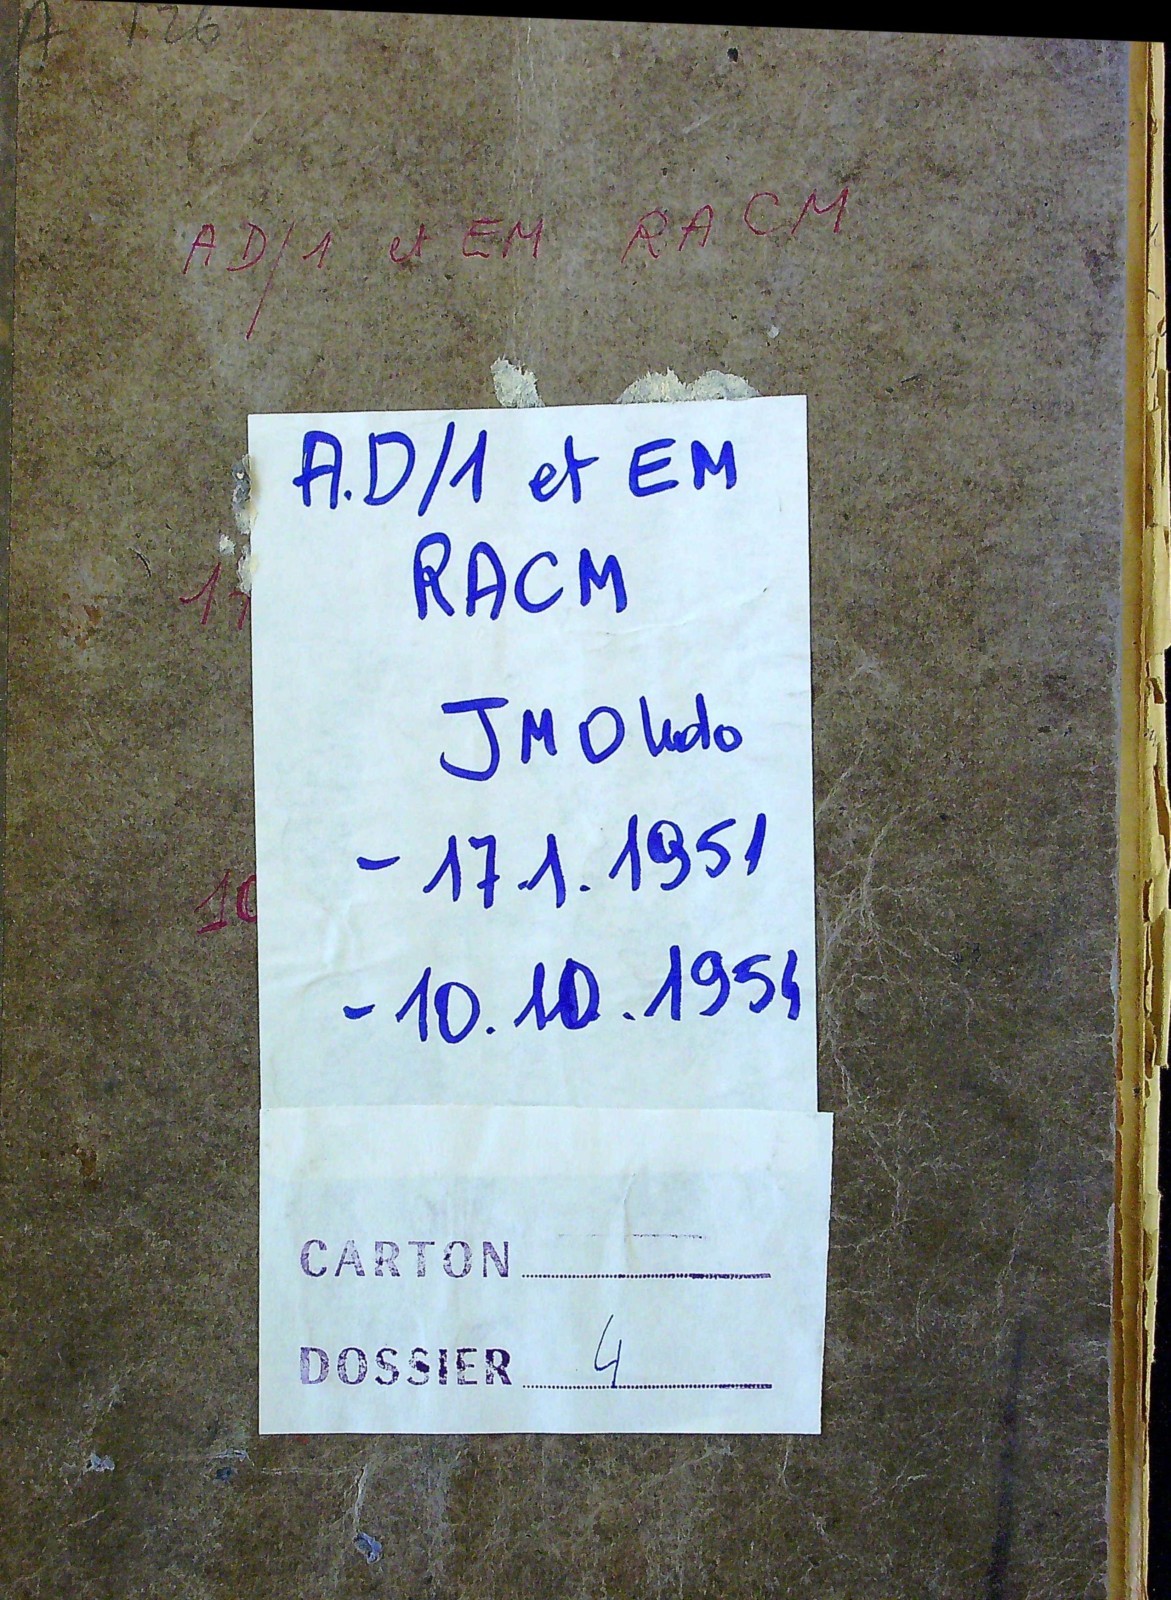 A 126
AD/1 et EM RACM
A.D/1 et EM
RACM
17
JMO hdo
- 17.1.1951
10
- 10.10.1954
CARTON
DOSSIER 4